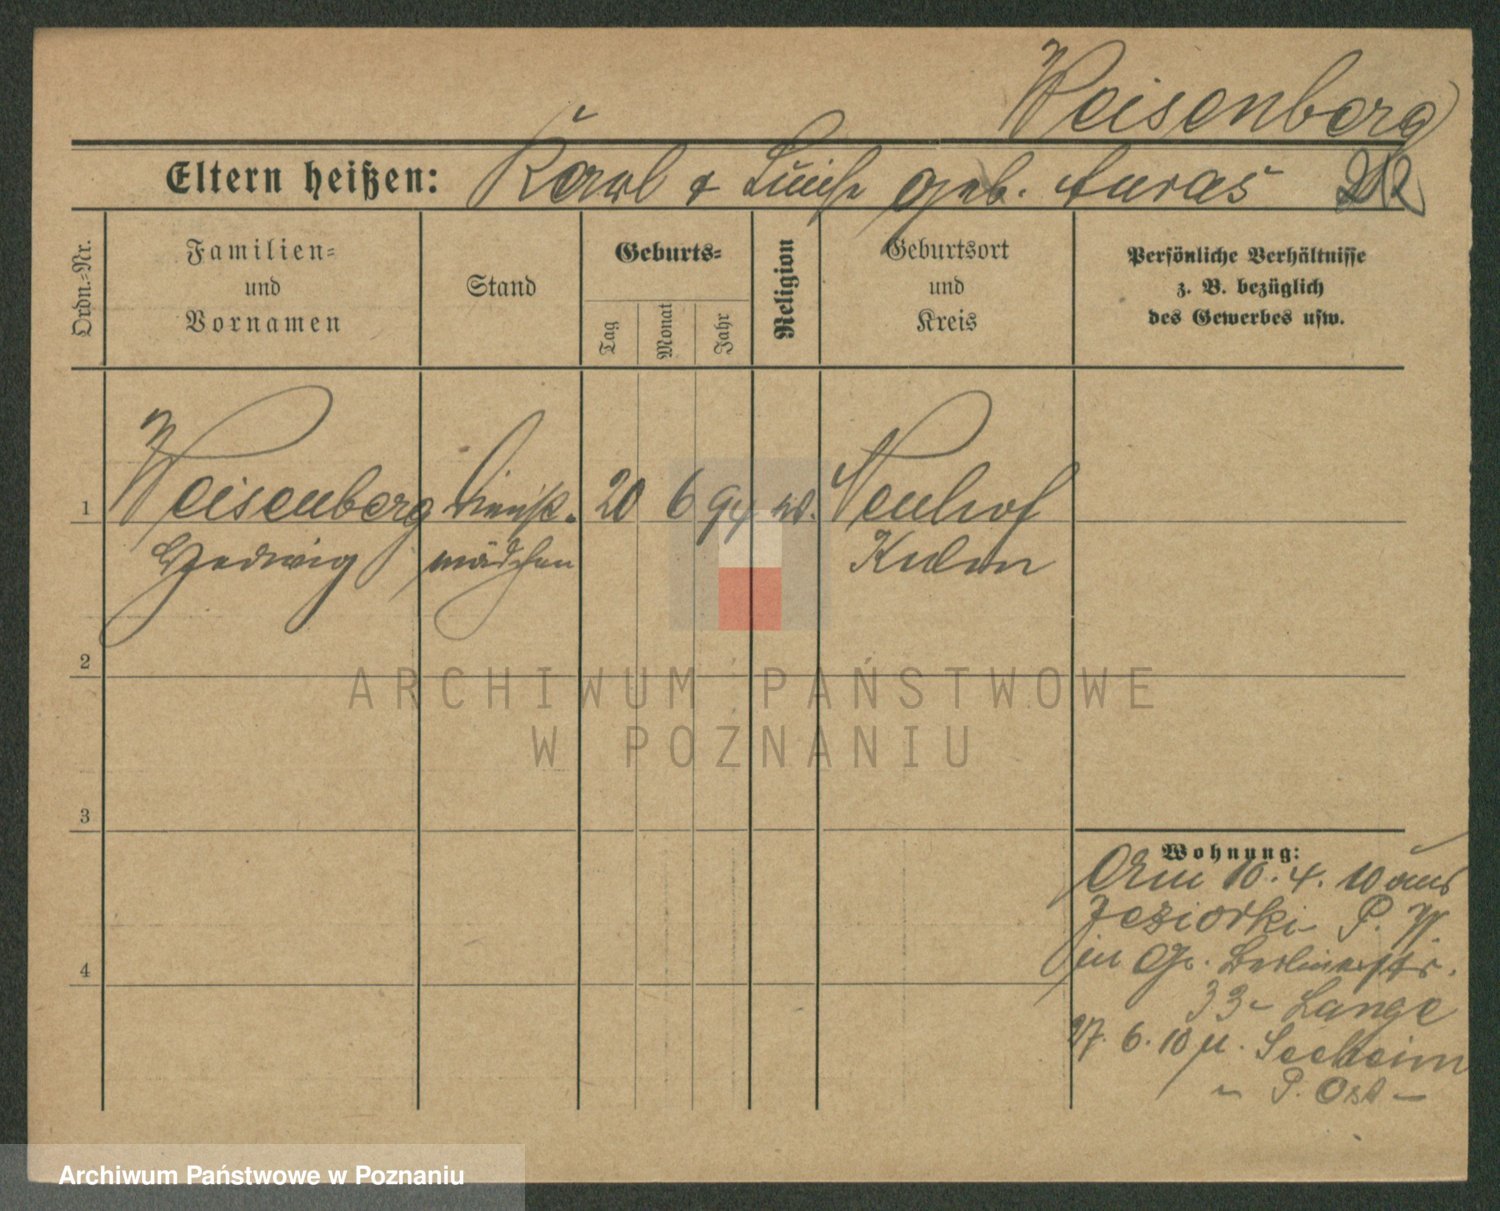 Weisenberg
Eltern heißen: Karl & Luise geb. Auras
Ordn.=Nr.
Familien=
und
Vornamen
Stand
Geburts=
Tag
Monat
Jahr
Religion
Geburtsort
und
Kreis
Persönliche Verhältnisse
z. B. bezüglich
des Gewerbes usw.
1 Weisenberg Dienst- 20 6 94 Neuhof
Hedwig mädchen Kulm
2
3
4
Wohnung:
Am 10. 4. 10 aus
Jeziorki P. W.
in Gr. Berlinerstr.
33 - Lange
27. 6. 10 n. Seeheim
P. Ost -
ARCHIWUM PAŃSTWOWE
W POZNANIU
Archiwum Państwowe w Poznaniu